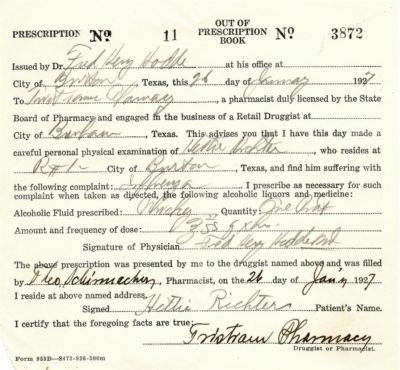 PRESCRIPTION No 11 OUT OF PRESCRIPTION BOOK No 3872
Issued by Dr. Fred Key Hodde at his office at
City of Burton, Texas, this 26 day of January 1927
To Tristram Pharmacy, a pharmacist duly licensed by the State
Board of Pharmacy and engaged in the business of a Retail Druggist at
City of. This advises you that I have this day made a
careful personal physical examination of Hettie Richter, who resides at
R#1 City of Burton, Texas, and find him suffering with
the following complaint: Influenza I prescribe as necessary for such
complaint when taken as directed, the following alcoholic liquors and medicine:
Alcoholic Fluid prescribed: Whiskey Quantity: One Pint
Amount and frequency of dose:
Signature of Physician Fred Key Hodde
The above prescription was presented by me to the druggist named above and was filled
by Theo. Schirmacher, Pharmacist, on the 26 day of Jan'y 1927
I reside at above named address.
Signed Hettie Richter Patient's Name.
I certify that the foregoing facts are true:
Tristram Pharmacy
Druggist or Pharmacist.
Form 959D—S473-926-300m